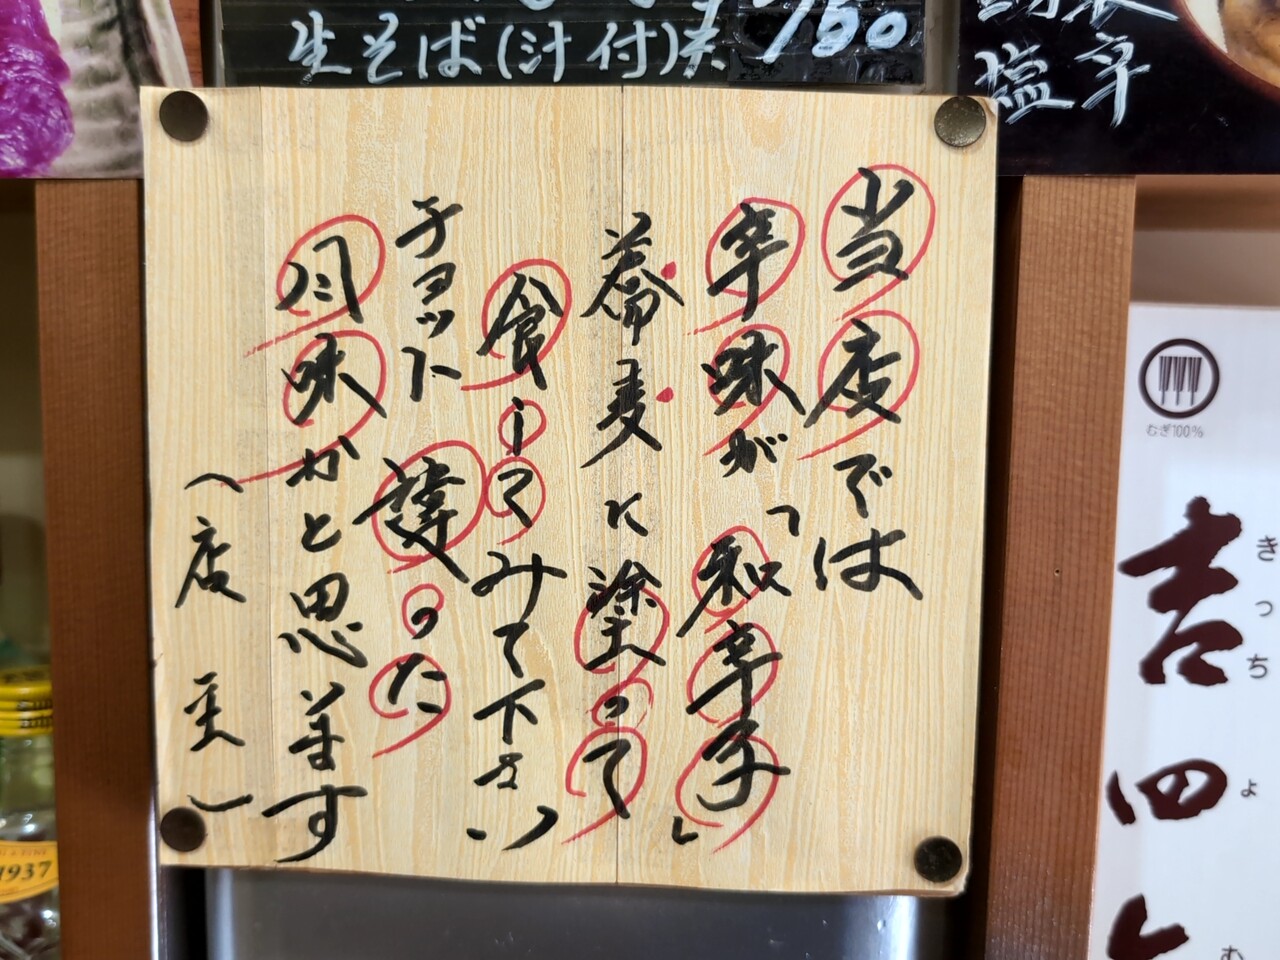 生そば(汁付)
750
塩辛
当店では
辛味が「和辛子」
蕎麦に塗って
食してみて下さい
チョット違った
風味かと思います
(店主)
むぎ100%
吉四
きっちょむ
1937